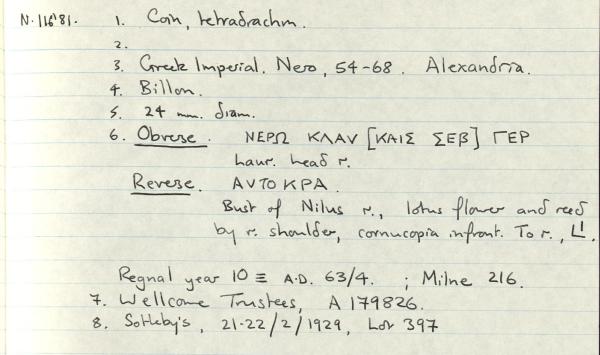 N.116'81. 1. Coin, tetradrachm.
2.
3. Greek Imperial. Nero, 54-68. Alexandria.
4. Billon.
5. 24 mm. diam.
6. Obverse. ΝΕΡΩ ΚΛΑΥ [ΚΑΙΣ ΣΕΒ] ΓΕΡ
laur. head r.
Reverse. ΑΥΤΟΚΡΑ.
Bust of Nilus r., lotus flower and reed
by r. shoulder, cornucopia infront. To r.,
Regnal year 10 ≡ A.D. 63/4. ; Milne 216.
7. Wellcome Trustees, A 179826.
8. Sotheby's, 21-22/2/1929, Lot 397